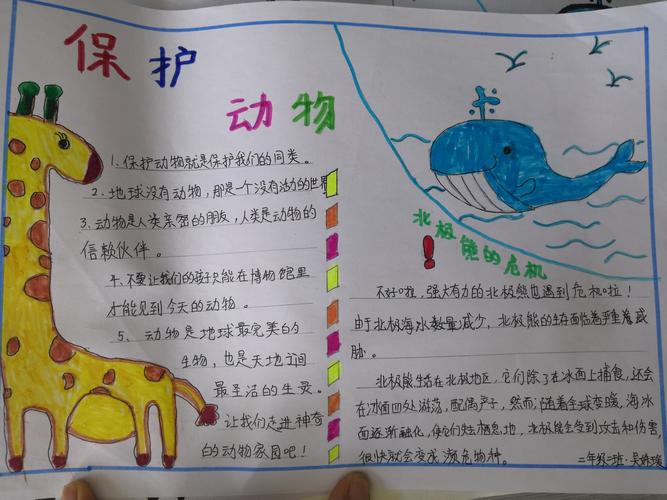 保护
动物
1、保护动物就是保护我们的同类。
2、地球没有动物,那是一个没有活力的世界
3、动物是人类亲密的朋友,人类是动物的
信赖伙伴。
4、不要让我们的孩子只能在博物馆里
才能见到今天的动物。
5、动物是地球最完美的
生物,也是天地之间
最圣洁的生灵。
让我们走进神奇
的动物家园吧!
北极熊的危机
不好啦,强大有力的北极熊也遇到危机啦!
由于北极海水数量减少,北极熊的生存面临着严重着威
胁。
北极熊生活在北极地区,它们除了在冰面上捕食,还会
在冰面四处游荡,配偶产子,然而随着全球变暖,海冰
面逐渐融化,使它们失去栖息地,北极熊会受到攻击和伤害,
很快就会变成濒危物种。
二年级二班·吴姝瑶